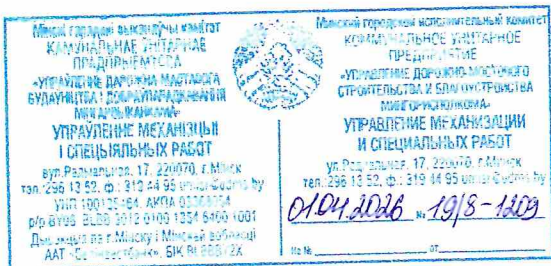 Мінскі гарадскі выканаўчы камітэт
КАМУНАЛЬНАЕ ЎНІТАРНАЕ
ПРАДПРЫЕМСТВА
«УПРАЎЛЕННЕ ДАРОЖНА-МАСТАВОГА
БУДАЎНІЦТВА І ДОБРАЎПАРАДКАВАННЯ
МІНГАРВЫКАНКАМА»
УПРАЎЛЕННЕ МЕХАНІЗЦЫІ
І СПЕЦЫЯЛЬНЫХ РАБОТ
вул.Радыяльная, 17, 220070, г.Мінск
тэл. 296 13 52, ф.: 319 44 95
УНП
р/р
Дырэкцыя па г.Мінску і Мінскай вобласці
ААТ «Белінвестбанк», БІК
Минский городской исполнительный комитет
КОММУНАЛЬНОЕ УНИТАРНОЕ
ПРЕДПРИЯТИЕ
«УПРАВЛЕНИЕ ДОРОЖНО-МОСТОВОГО
СТРОИТЕЛЬСТВА И БЛАГОУСТРОЙСТВА
МИНГОРИСПОЛКОМА»
УПРАВЛЕНИЕ МЕХАНИЗАЦИИ
И СПЕЦИАЛЬНЫХ РАБОТ
ул.Радиальная, 17, 220070, г.Минск
тел.: 296 13 52, ф.: 319 44 95
01.04.2026 № 19/8-1209
На № от